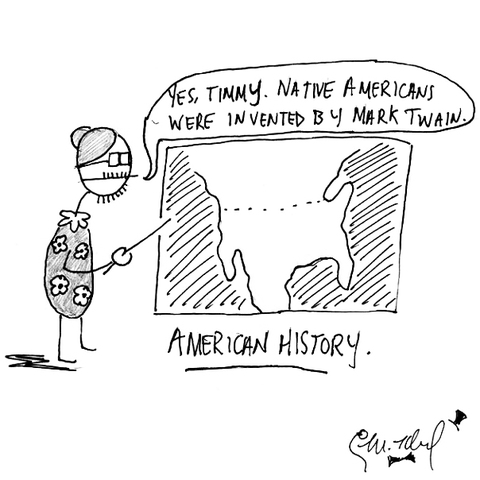 YES, TIMMY. NATIVE AMERICANS
WERE INVENTED BY MARK TWAIN.
AMERICAN HISTORY.